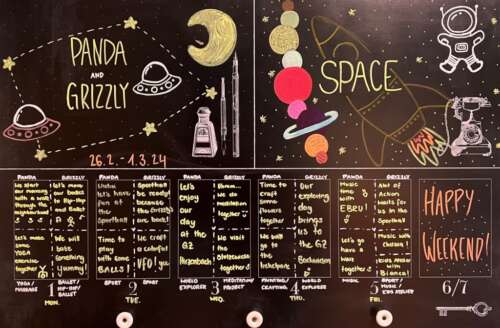 PANDA
AND
GRIZZLY
26.2. - 1.3.24
SPACE
PANDA GRIZZLY PANDA GRIZZLY PANDA GRIZZLY PANDA GRIZZLY PANDA GRIZZLY
We start
our mornings
with a walk
through the
neighbourhood
Let's move
our bodies
to Hip-Hop
and Ballet
Let's have
fun at
the Sporthall
Sporthall
be ready
because
the Grizzly's
are here!
Let's
Enjoy
our
day
at the
G2
Let's do
meditation
together
Time to
craft
some
flowers
together
Our
exploring
day
brings
us to
the G2
Music
time
with
EBRU!
A lot of
Action
waits for
us in the
Sporthall
Let's
make some
YOGA
exercise
together
We will
bake
something
Yummy!
Time to
play
with some
BALLS!
We craft
a colorful
UFO!
We visit
the
together
We will
go to
the
Let's go
have a
walk
together
Music with
Chelsea!
Kids Music
with
Bianca!
HAPPY
WEEKEND!
YOGA/
MASSAGE
1
MON.
BALLET/
HIP-HOP/
BALLET
SPORT
2
TUE.
SPORT
WORLD
EXPLORER
3
WED.
MEDITATION/
PROJECT
PAINTING/
CRAFTING
4
THU.
WORLD
EXPLORER
MUSIC
5
FRI.
SPORT/
MUSIC/
KIDS ATELIER
6/7